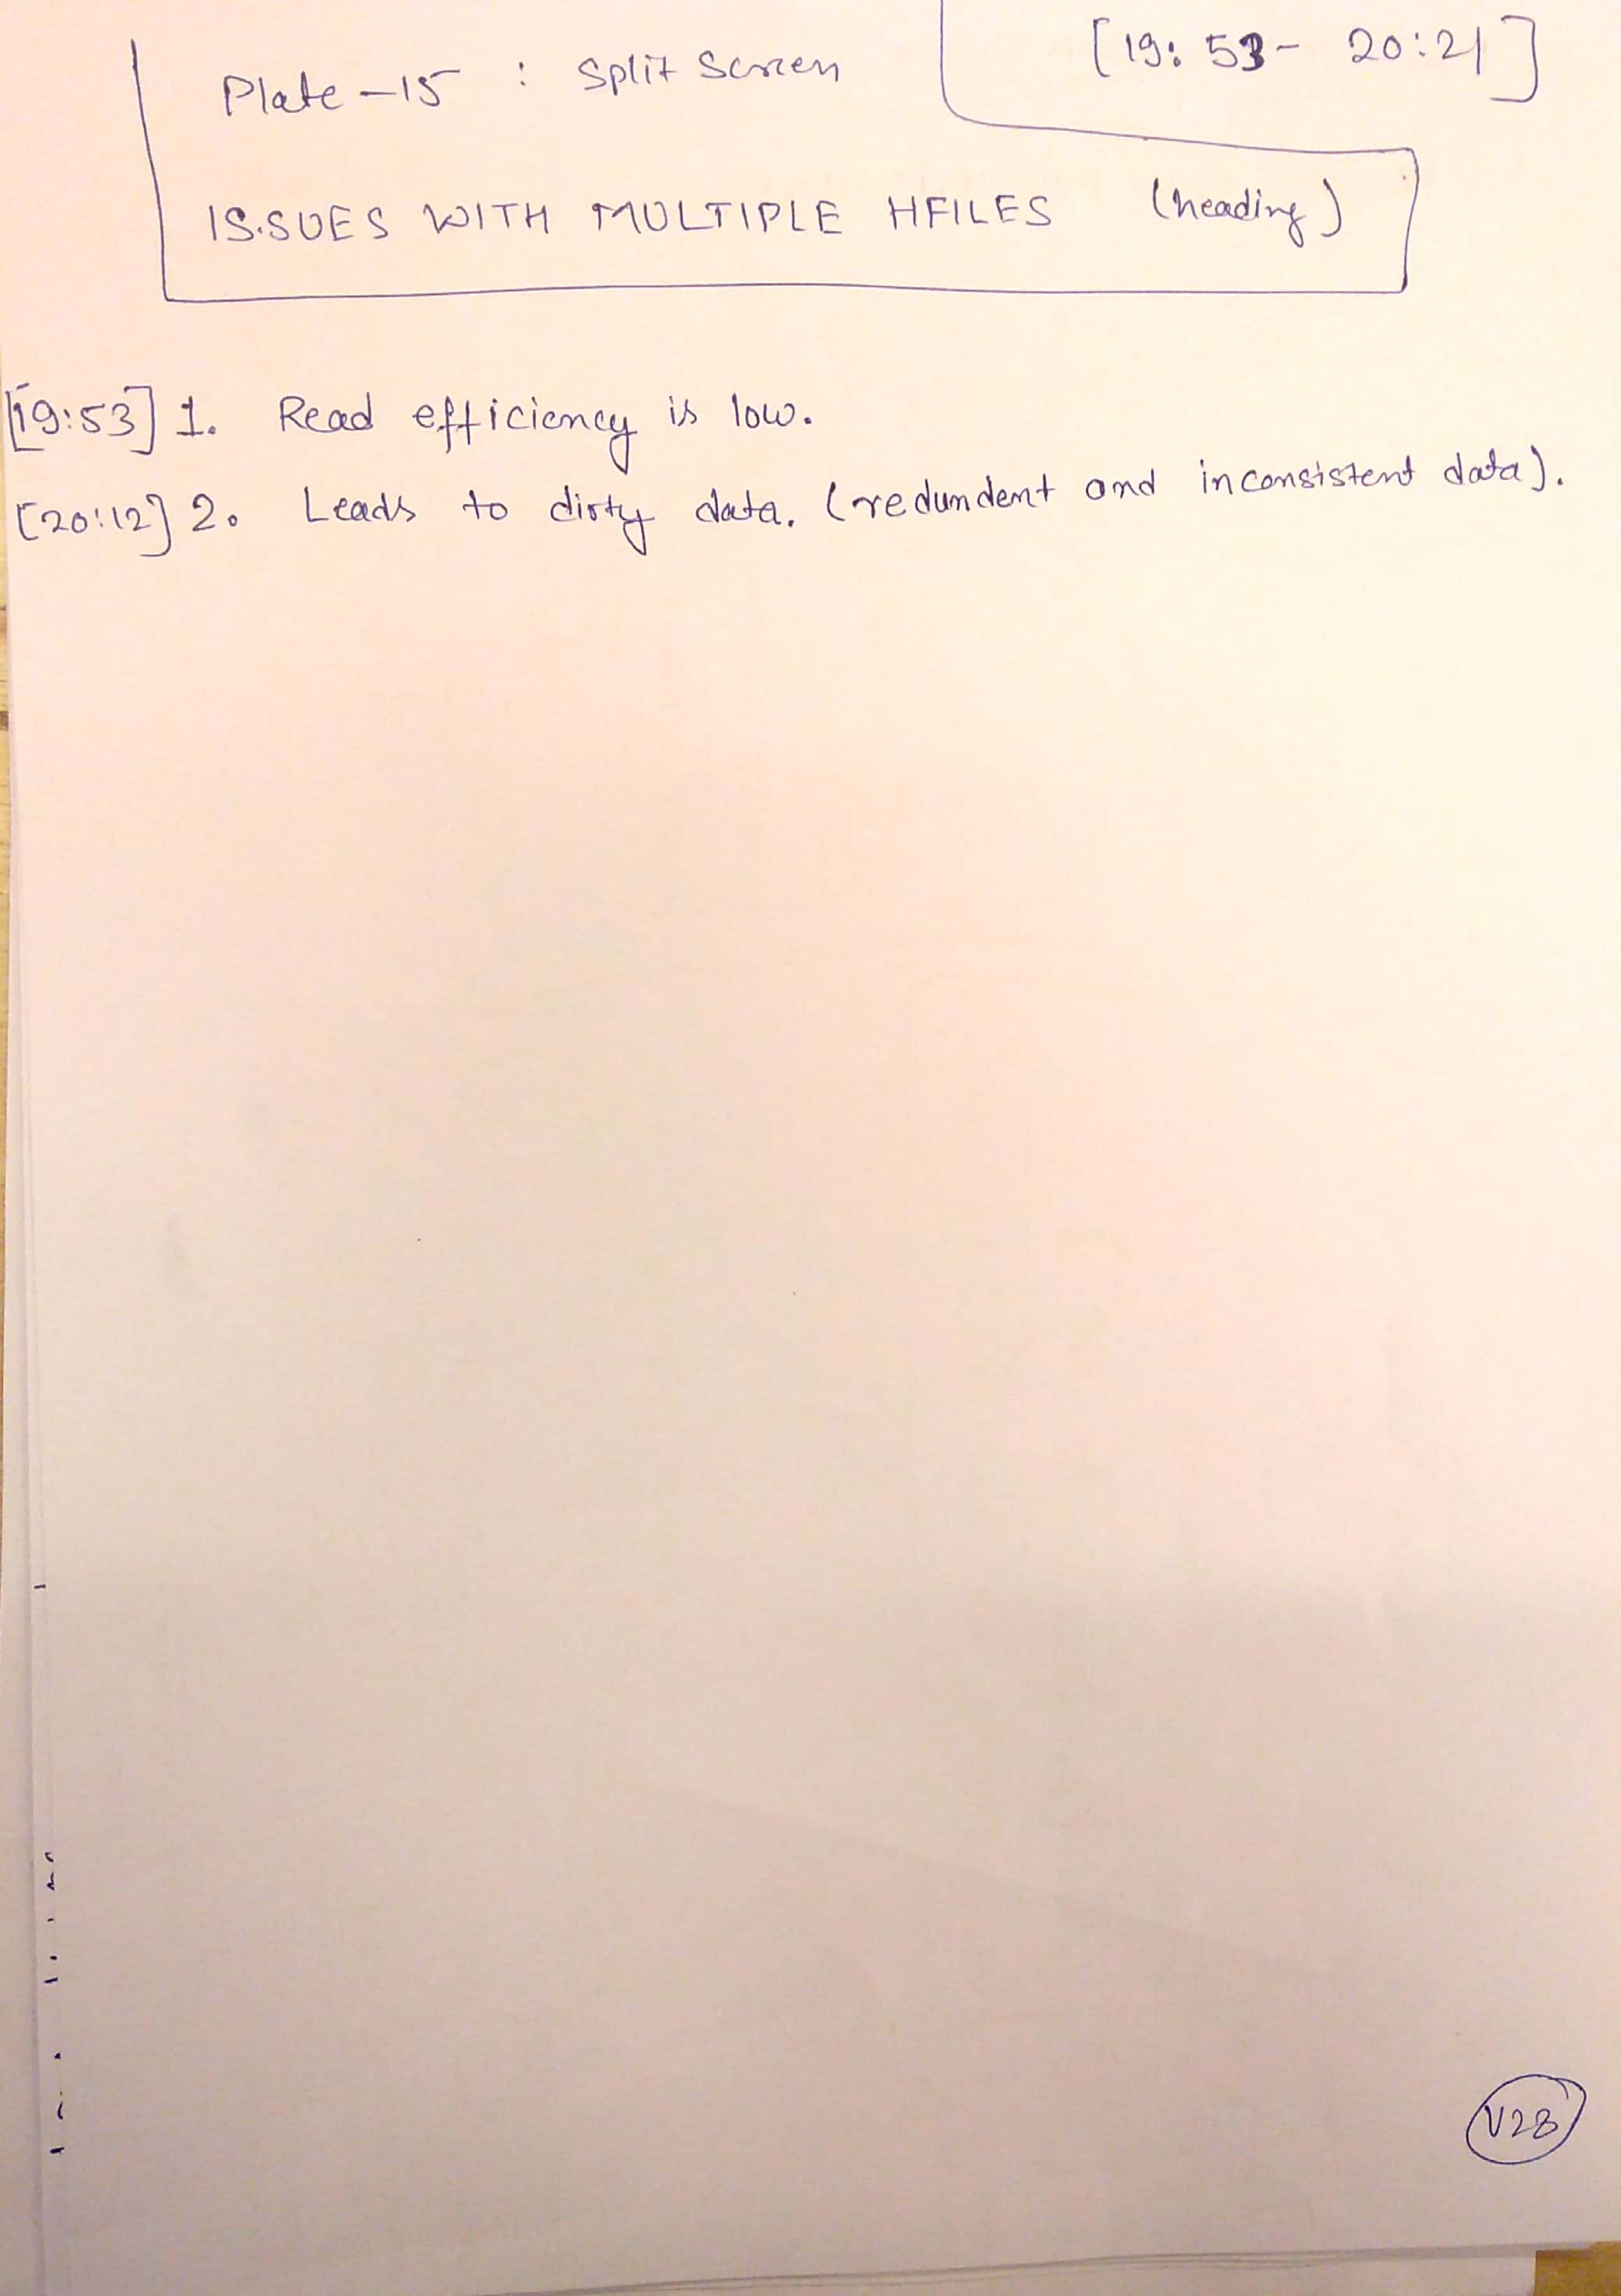 Plate-15 : Split Screen [19:53- 20:21]
ISSUES WITH MULTIPLE HFILES (heading)
[19:53] 1. Read efficiency is low.
[20:12] 2. Leads to dirty data. (redundent and inconsistent data).
V28